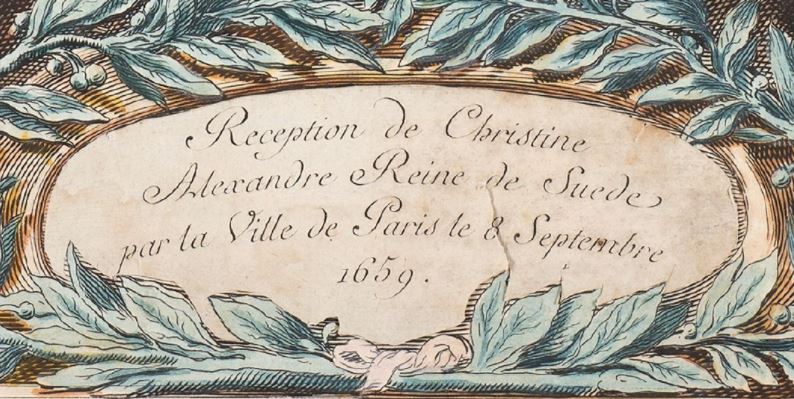 Reception de Christine
Alexandre Reine de Suede
par la Ville de Paris le 8 Septembre
1659.